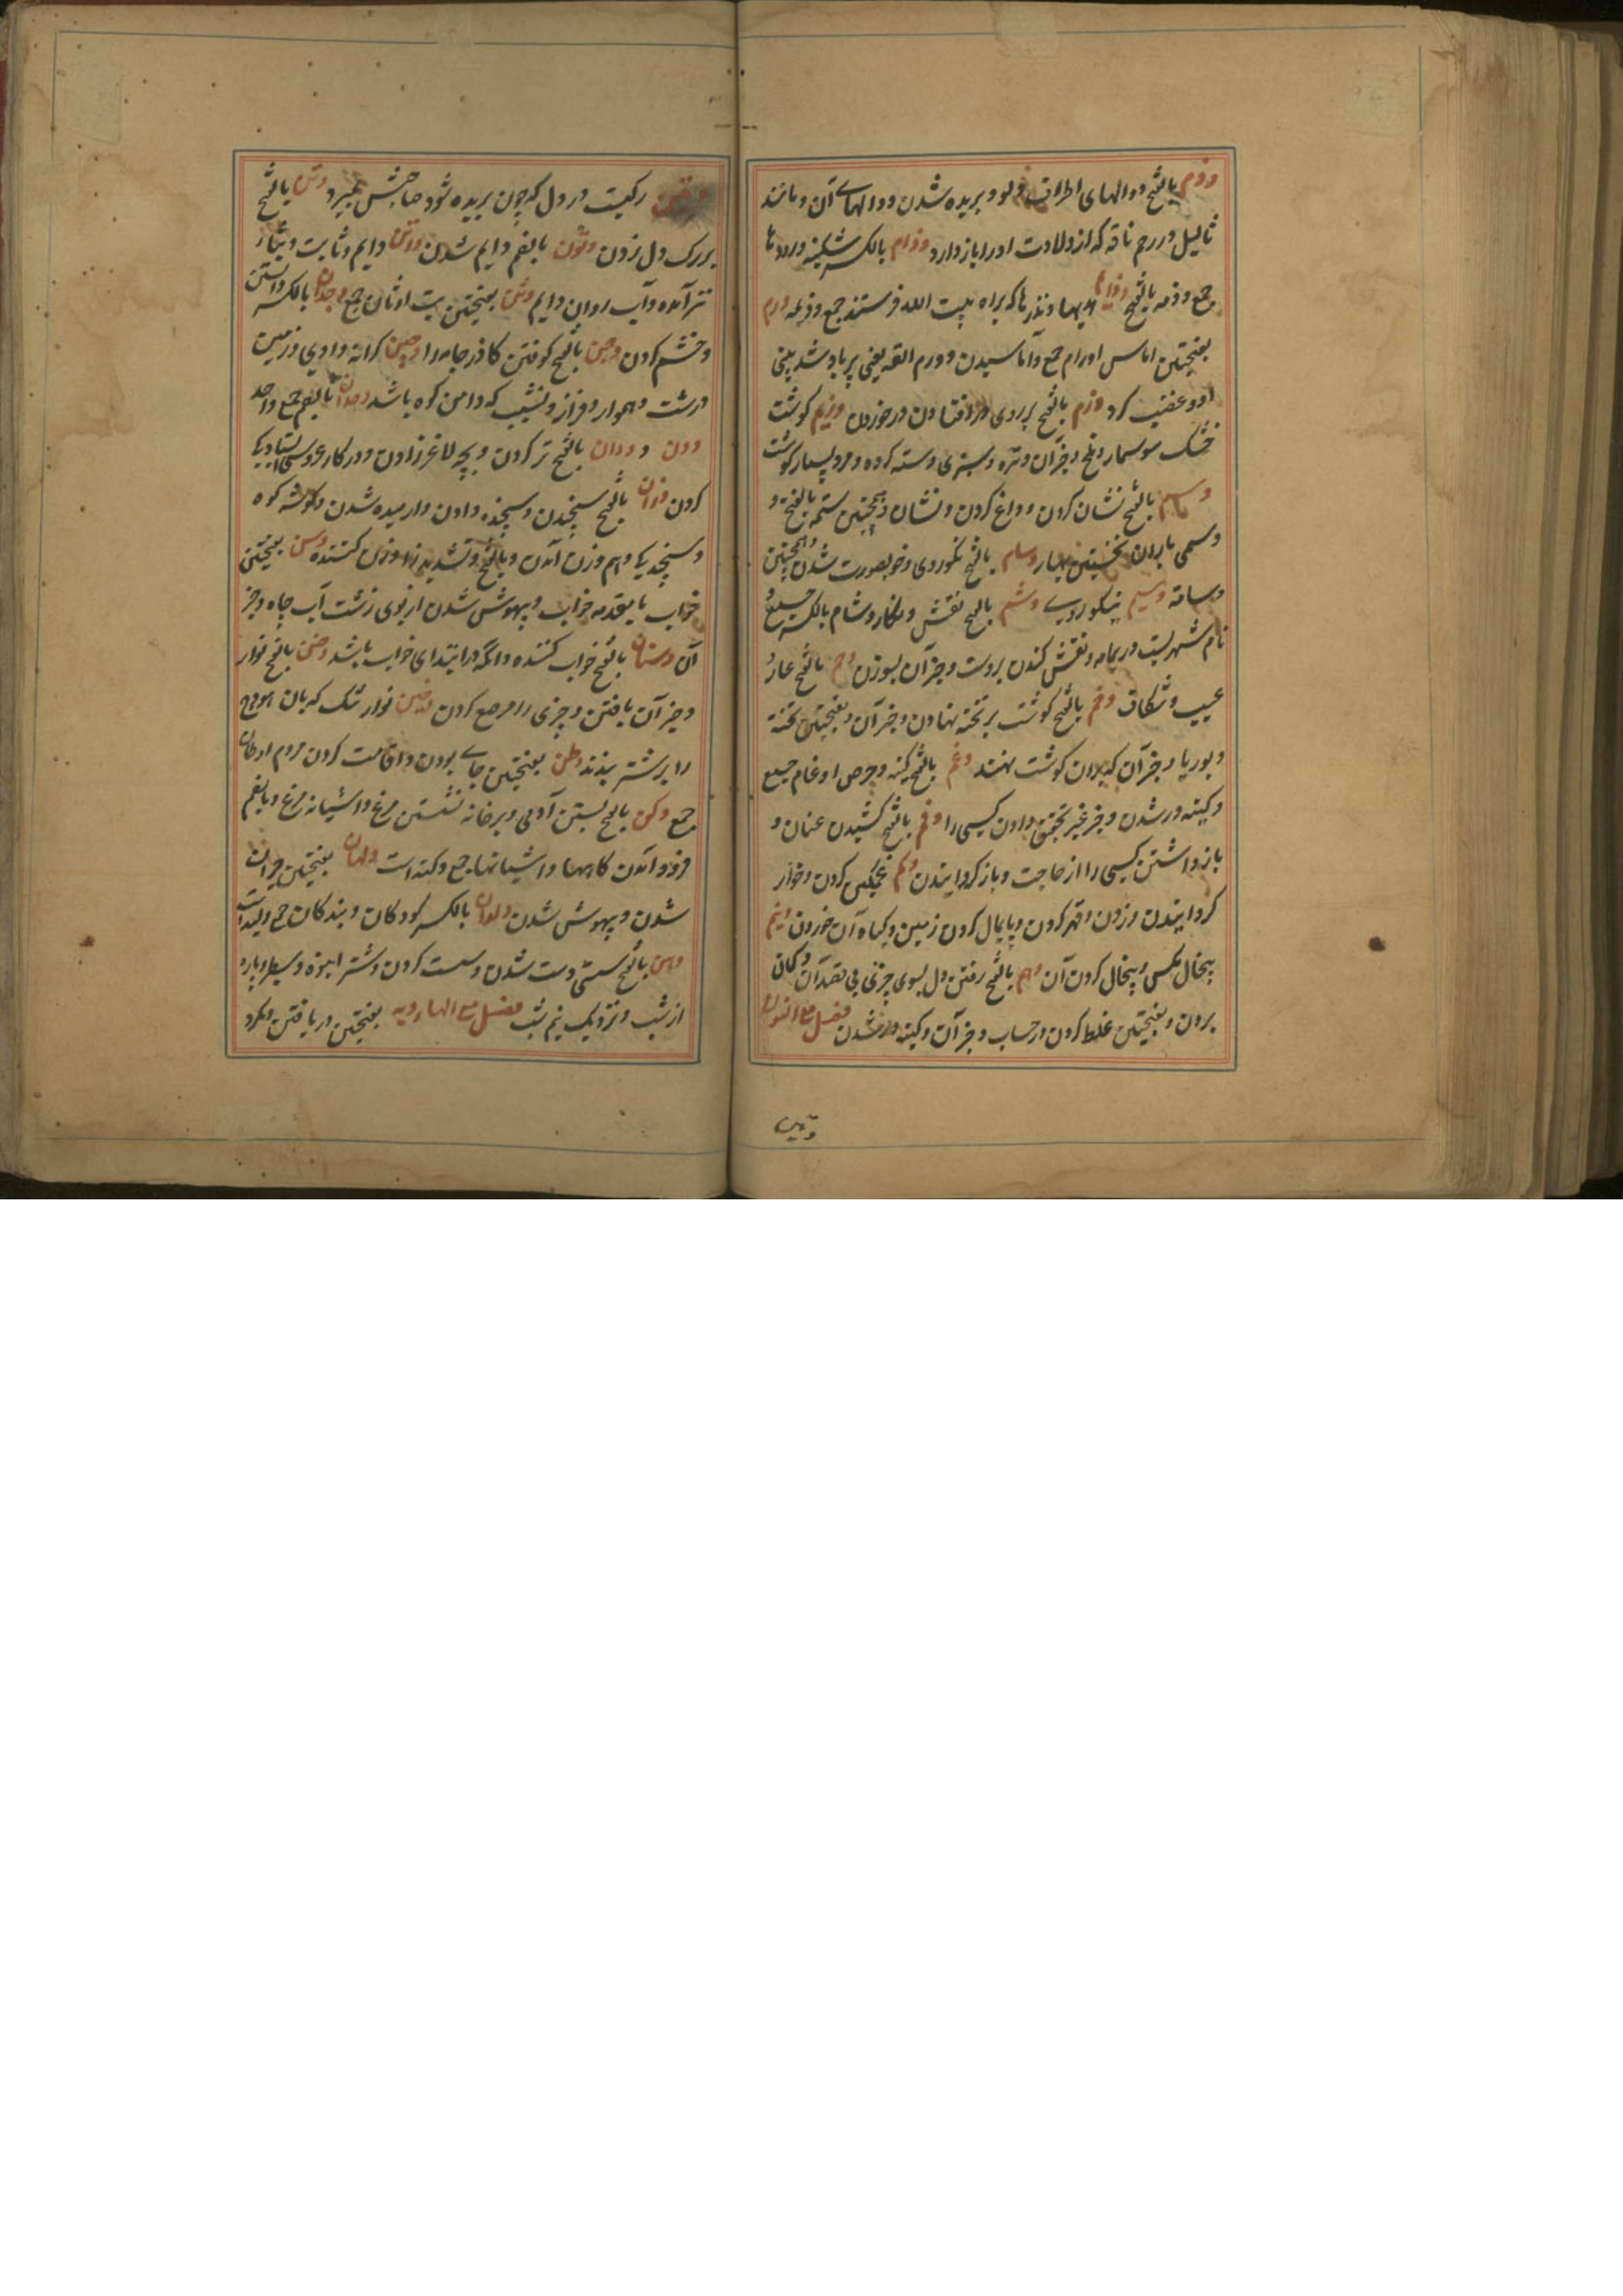 وذم بالفتح دوالهای اطراف دلو و بریده شدن دوالهای آن و مانند
ثالیل در رحم ناقه که از ولادت او را باز دارد وذام بالکسر شکنبه و روده ها
جمع وذمه بالفتح وذایم هدیها و نذرها که براه بیت الله فرستند جمع وذیمه ورم
بفتحتین اماس اورام جمع و آماسیدن و ورم انفه یعنی پر باد شد بینی
او و غضب کرد وزم بالفتح
خشک سوسمار و ملخ و جز آن و تره و سبزی دسته کرده و مرد بسیار گوشت
وسم بالفتح نشان کردن و داغ کردن و نشان و همچنین سمه بالفتح و
وسمی باران نخستین بهار وسام بالفتح نکوروی و خوبصورت شدن و همچنین
وسامة وسیم نیکوروی وشم بالفتح نقش و نگار وشام بالکسر جمع و
نام شهریست در یمامه و نقش کندن بر دست و جز آن بسوزن وصم بالفتح عار و
عیب و شکاف وضم بالفتح گوشت بر تخته نهادن و جز آن و بفتحتین تخته
و بوریا و جز آن که بدان گوشت نهند وغم بالفتح کینه و حرص اوغام جمع
و کینه ور شدن و خبر غیر تحقیق دادن کسی را وقم بالفتح کشیدن عنان و
باز داشتن کسی را از حاجت و باز گردانیدن وکم غمگین کردن و خوار
گردانیدن و زدن و قهر کردن و پایمال کردن زمین و گیاه آن خوردن ونیم
پیخال مگس و پیخال کردن آن وهم بالفتح رفتن دل بسوی چیزی بی قصد آن و گمان
بردن و بفتحتین غلط کردن در حساب و جز آن و کینه ور شدن فصل مع النون
وتین
وتین رگیست در دل که چون بریده شود صاحبش بمیرد وتن بالفتح
بر رگ دل زدن وتون بالضم دایم شدن واتن دایم و ثابت و
دایم وثن بفتحتین بت اوثان جمع وجدان بالکسر دانستن
و خشم کردن وجن بالفتح کوفتن گاذر جامه را وجین کرانه وادی و زمین
درشت و هموار و فراز و نشیب که دامن کوه باشد وحدان بالضم جمع واحد
ودن و ودان بالفتح تر کردن و بچه لاغر زادن و در کار عروسی
کردن وزن بالفتح سنجیدن و سنجیده دادن و ارمیده شدن و گوشه کوه
و سنجیدگی و هم وزن آمدن و بالفتح و تشدید زا وزن کننده وسن بفتحتین
خواب یا مقدمه خواب و بیهوش شدن از بوی زشت آب چاه و جز
آن وسنان بالفتح خواب کننده و آنکه در ابتدای خواب باشد وضن بالفتح نوار
و جز آن بافتن و چیزی را مرصع کردن وضین نوار تنگ که بان هودج
را بر شتر بندند وطن بفتحتین جای بودن و اقامت کردن مردم اوطان
جمع وکن بالفتح نشستن آدمی و بر خانه نشستن مرغ و اشیانه مرغ و بالضم
فرود آمدن و اشیانها جمع وکنه است ولهان بفتحتین حیران
شدن و بیهوش شدن ولدان بالکسر کودکان و بندکان جمع ولید است
وهن بالفتح سستی و سست شدن و سست کردن و شتر انبوه و سطبر و پاره
از شب و نزدیک نیم شب فصل مع الهاء وبه بفتحتین دریافتن و